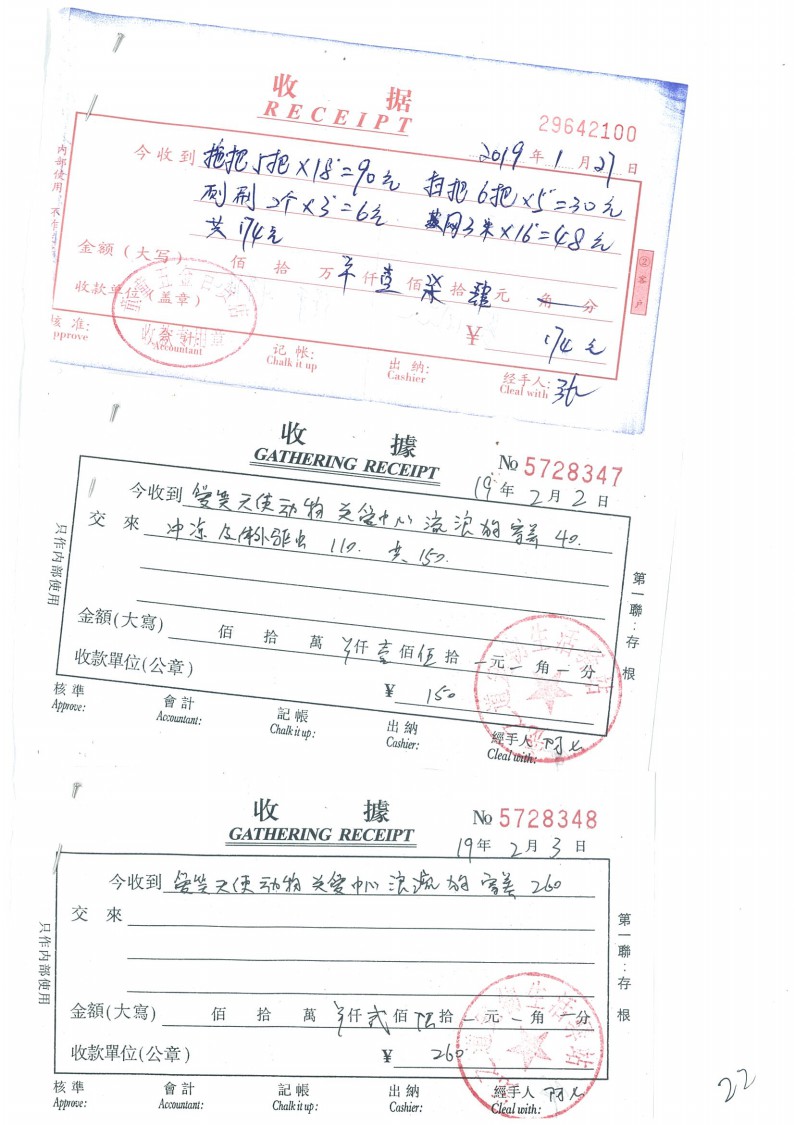 收 据
RECEIPT
29642100
2019 年 1 月 27 日
今收到 拖把5把×18=90元 扫把6把×5=30元
刷 2个×3=6元 网3米×16=48元
共174元
金额（大写） 佰 拾 万 仟 壹 佰 柒 拾 肆 元 角 分
收款单位（盖章）
¥ 174元
核 准:
Approve
会 计:
Accountant
记 帐:
Chalk it up
出 纳:
Cashier
经手人:
Cleal with
内部使用
②客户
收 據
GATHERING RECEIPT
No 5728347
19 年 2 月 2 日
今收到 爱笑天使动物关爱中心流浪狗寄养 40.
交 來 冲凉及体外驱虫 110. 共 150.
金額(大寫) 佰 拾 萬 仟 壹 佰 伍 拾 元 角 分
收款單位(公章)
¥ 150
核 準
Approve:
會 計
Accountant:
記 帳
Chalk it up:
出 納
Cashier:
經手人
Cleal with:
只作内部使用
第一聯:存根
收 據
GATHERING RECEIPT
No 5728348
19 年 2 月 3 日
今收到 爱笑天使动物关爱中心浪流狗寄养 260
交 來
金額(大寫) 佰 拾 萬 仟 贰 佰 陆 拾 元 角 分
收款單位(公章)
¥ 260
核 準
Approve:
會 計
Accountant:
記 帳
Chalk it up:
出 納
Cashier:
經手人
Cleal with:
只作内部使用
第一聯:存根
22